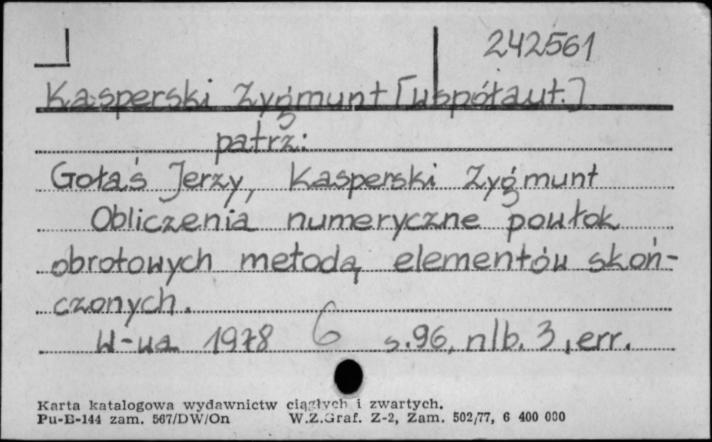 242561
Kasperski Zygmunt [współaut.]
patrz:
Gołaś Jerzy, Kasperski Zygmunt
Obliczenia numeryczne powłok
obrotowych metodą elementów skoń-
czonych.
W-wa 1978 6 s.96, nlb. 3, err.
Karta katalogowa wydawnictw ciągłych i zwartych.
Pu-B-144 zam. 567/DW/On W.Z.Graf. Z-2, Zam. 502/77, 6 400 000